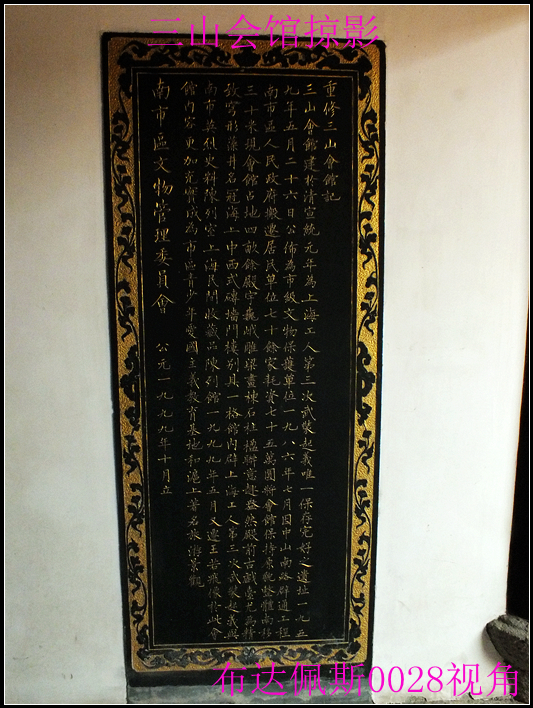 三山会馆掠影
重修三山會館記
三山會館建於清宣統元年為上海工人第三次武裝起義唯一保存完好之遺址一九五
九年五月二十六日公佈為市級文物保護單位一九八六年七月因中山南路辟通工程
南市區人民政府搬遷居民單位七十餘家耗資七十五萬圓將會館保持原貌整體南移
三十米現會館占地四畝餘殿宇巍峨雕梁畫棟石柱楹聯富趣盎然殿前古戲臺尤為精
致穹形藻井名冠海上中西式磚墻門樓別具一格館內辟上海工人第三次武裝起義與
南市英烈史料陳列室上海民間收藏品陳列館一九九九年五月又遷王若飛像於此會
館內容更加充實成為市區青少年愛國主義教育基地和滬上著名旅遊景觀
南市區文物管理委員會 公元一九九九年十月立
布达佩斯0028视角